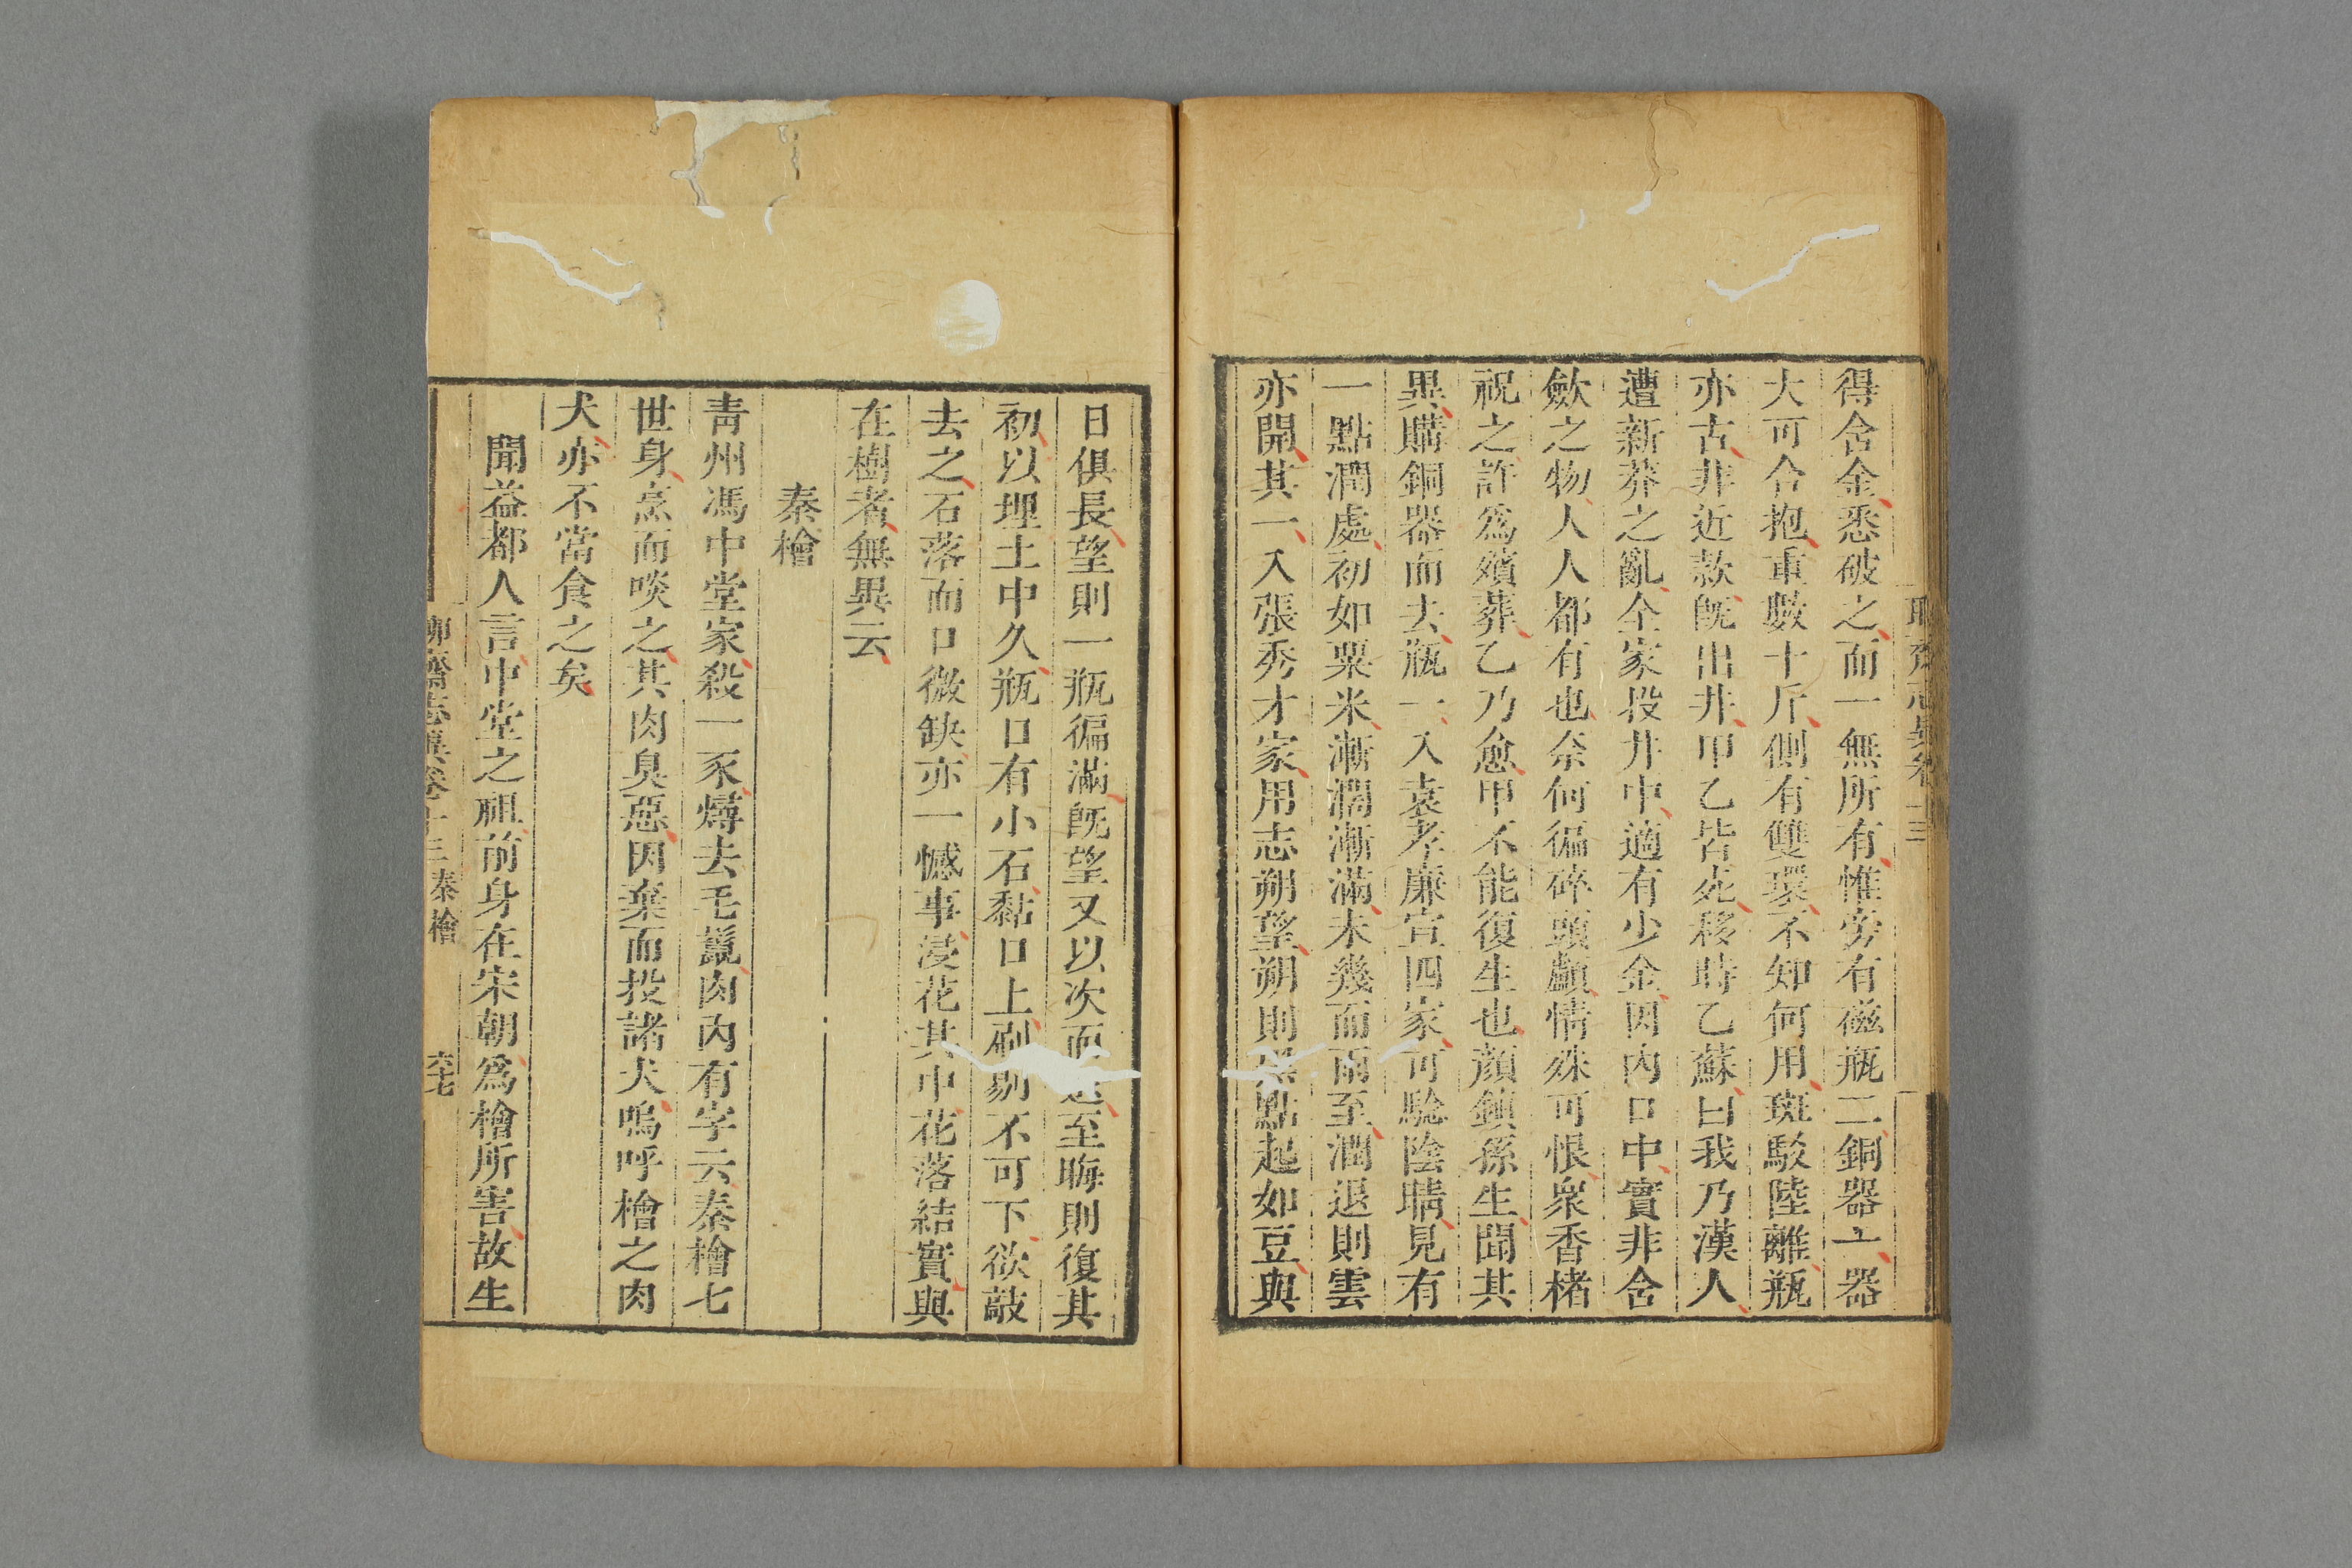 聊齋志異卷十三
得含金悉破之而一無所有惟旁有磁瓶二銅器一器
大可合抱重數十斤側有雙環不知何用斑駁陸離瓶
亦古非近款旣出井甲乙皆死移時乙蘇曰我乃漢人
遭新莽之亂全家投井中適有少金因內口中實非含
歛之物人人都有也奈何徧碎頭顱情殊可恨衆香楮
祝之許爲殯葬乙乃愈甲不能復生也顏鎮孫生聞其
異購銅器而去瓶一入袁孝廉宣四家可驗陰晴見有
一點潤處初如粟米漸濶漸滿未幾而雨至潤退則雲
亦開其一入張秀才家用志朔望朔則點起如豆與
日俱長望則一瓶徧滿旣望又以次而至晦則復其
初以埋土中久瓶口有小石黏口上刷剔不可下欲敲
去之石落而口微缺亦一憾事浸花其中花落結實與
在樹者無異云
秦檜
青州馮中堂家殺一豕燖去毛鬣肉內有字云秦檜七
世身烹而啖之其肉臭惡因棄而投諸犬嗚呼檜之肉
犬亦不當食之矣
聞益都人言中堂之祖前身在宋朝爲檜所害故生
聊齋志異卷十三 秦檜 六七